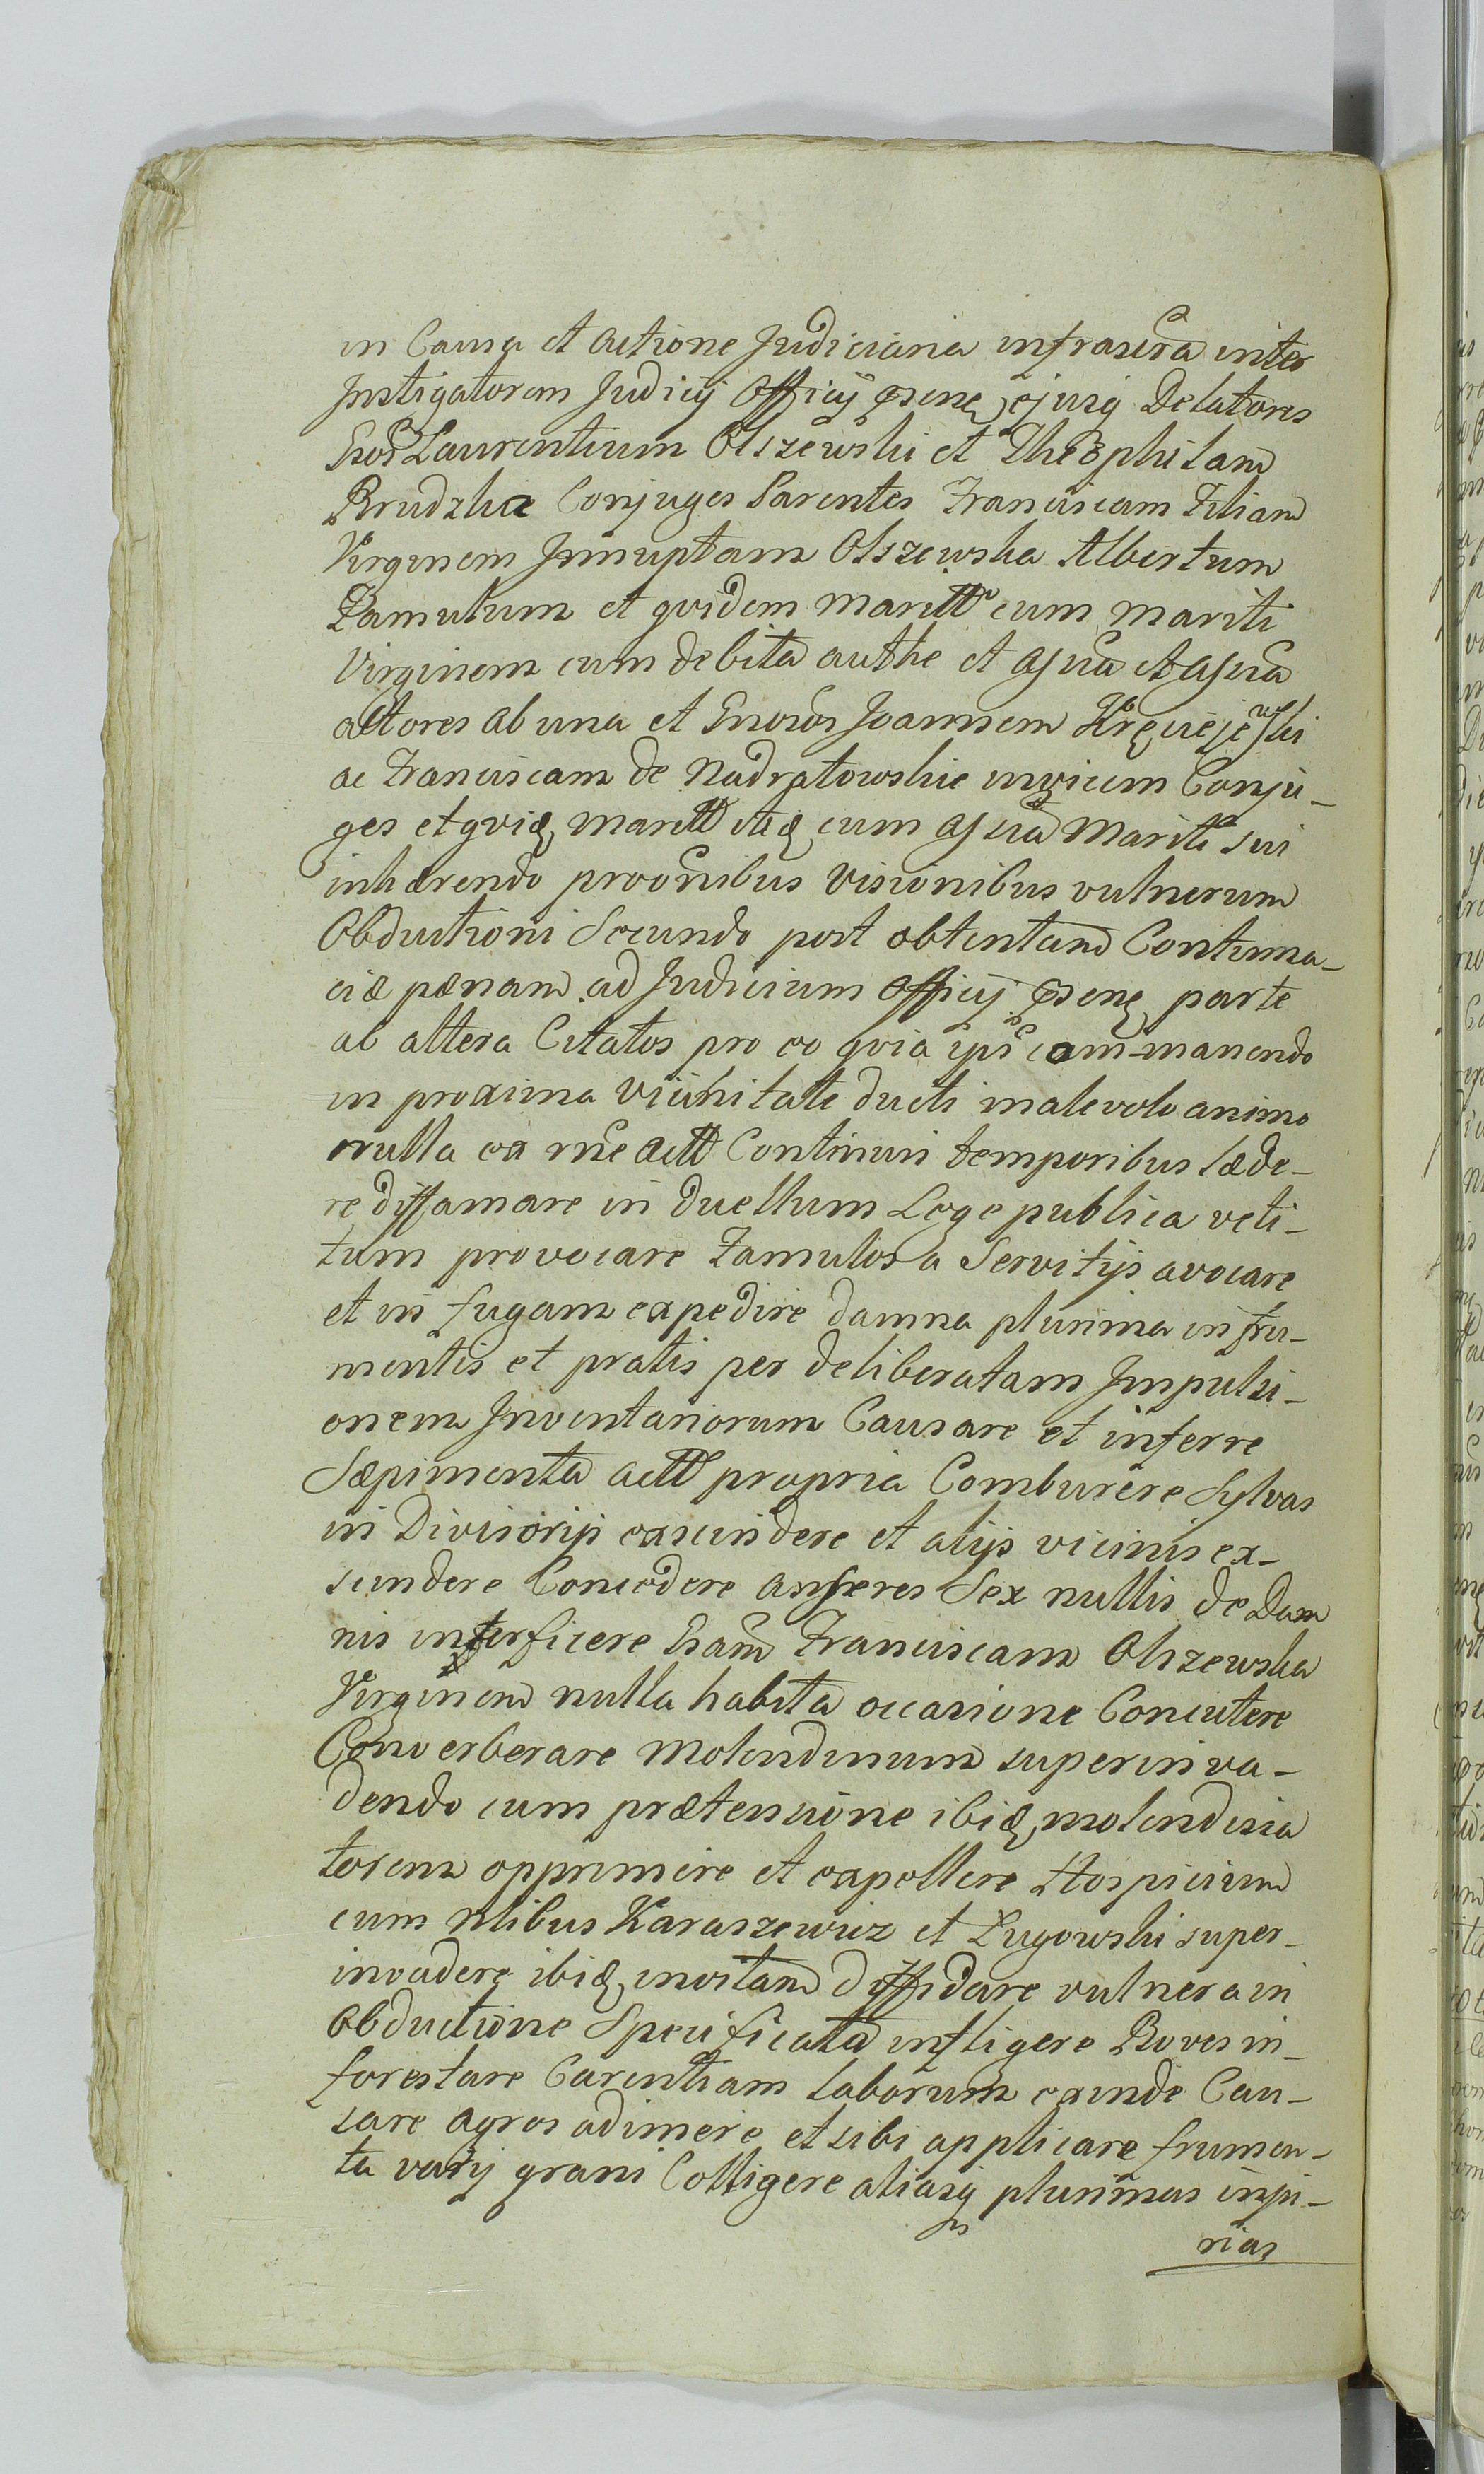 in Causa et actione Judiciaria infrascra inter
Instigatorem Judicij Officij psens ejusq Delatores
Gsos Laurentium Olszewski et Theophilam
Brudzkie Conjuges Parentes Franciscam Filiam
Virginem Innuptam Olszewska Albertum
Famulum et qvidem maritta cum mariti
Virginem cum debita authe et assua et assua
actores ab una et Gnosos Joannem Kręciejewski
ac Franciscam de Nadratowskie invicem Conju-
ges et qvid maritt itid cum assua Mariti sui
inhærendo proonibus Visionibus vulnerum
Obductioni Secundo post obtentam Contuma-
ciæ pænam ad Judicium Officij psens parte
ab altera Citatos pro eo qvia ipsi com-manendo
in proxima vicinitate ducti malevolo animo
nulla ex rne actt Continuis temporibus læde-
re diffamare in duellum Lege publica veti-
tum provocare Famulos a Servitijs avocare
et in fugam expedire damna plurima in fru-
mentis et pratis per deliberatam Impulsi-
onem Inventariorum Causare et inferre
Sæpimenta actt propria Comburere Sylvas
in Divisorijs exscindere et alijs vicinis ex-
scindere Concedere anseres Sex nullis de Dam
nis interficere Gsam Franciscam Olszewska
Virginem nulla habita occasione Concutere
Converberare Molendinum superinva-
dendo cum prætensione ibid molendina
torem opprimere et expellere Hospicium
cum nlibus Karaszewicz et Ługowski super-
invadere ibid invitam diffidare vulnera in
Obductione Specificata infligere Boves in-
forestare Carentiam laborum exinde Cau-
sare agros adimere et sibi applicare frumen-
ta varij grani Colligere aliasq plurimas inju-
rias